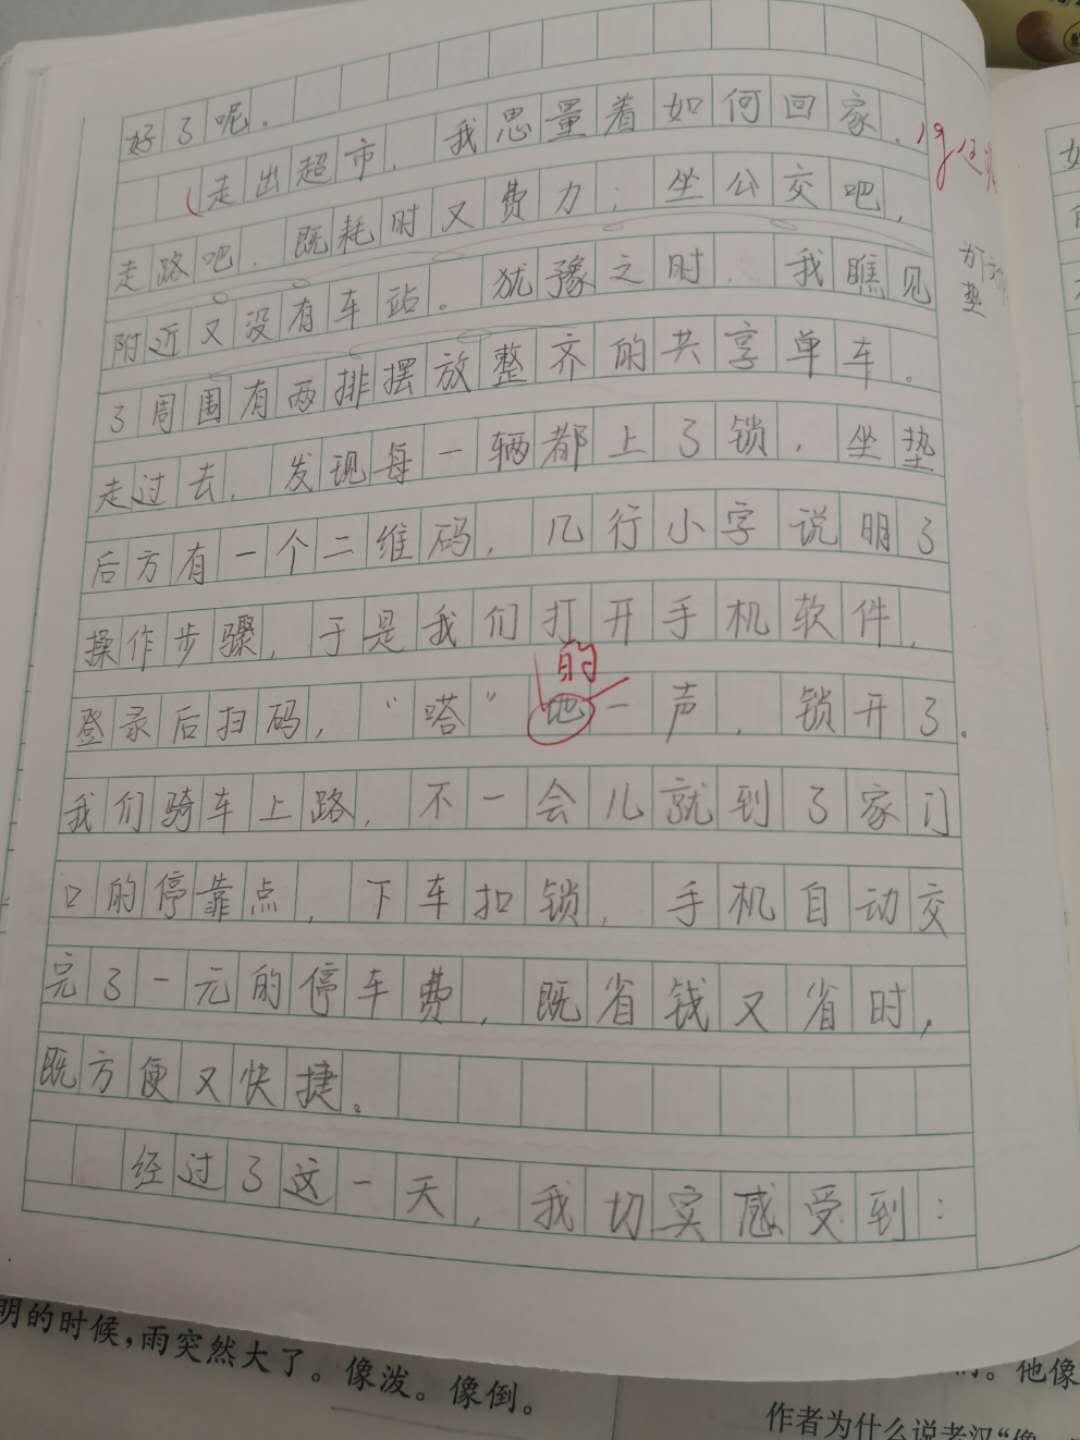 好了呢。
走出超市，我思量着如何回家。
走路吧，既耗时又费力；坐公交吧，
附近又没有车站。犹豫之时，我瞧见
了周围有两排摆放整齐的共享单车。
走过去，发现每一辆都上了锁，坐垫
后方有一个二维码，几行小字说明了
操作步骤，于是我们打开手机软件，
的
登录后扫码，“嗒”地一声，锁开了。
我们骑车上路，不一会儿就到了家门
口的停靠点，下车扣锁，手机自动交
完了一元的停车费，既省钱又省时，
既方便又快捷。
经过了这一天，我切实感受到：
垫
明的时候，雨突然大了。像泼。像倒。
他像
作者为什么说老汉“像